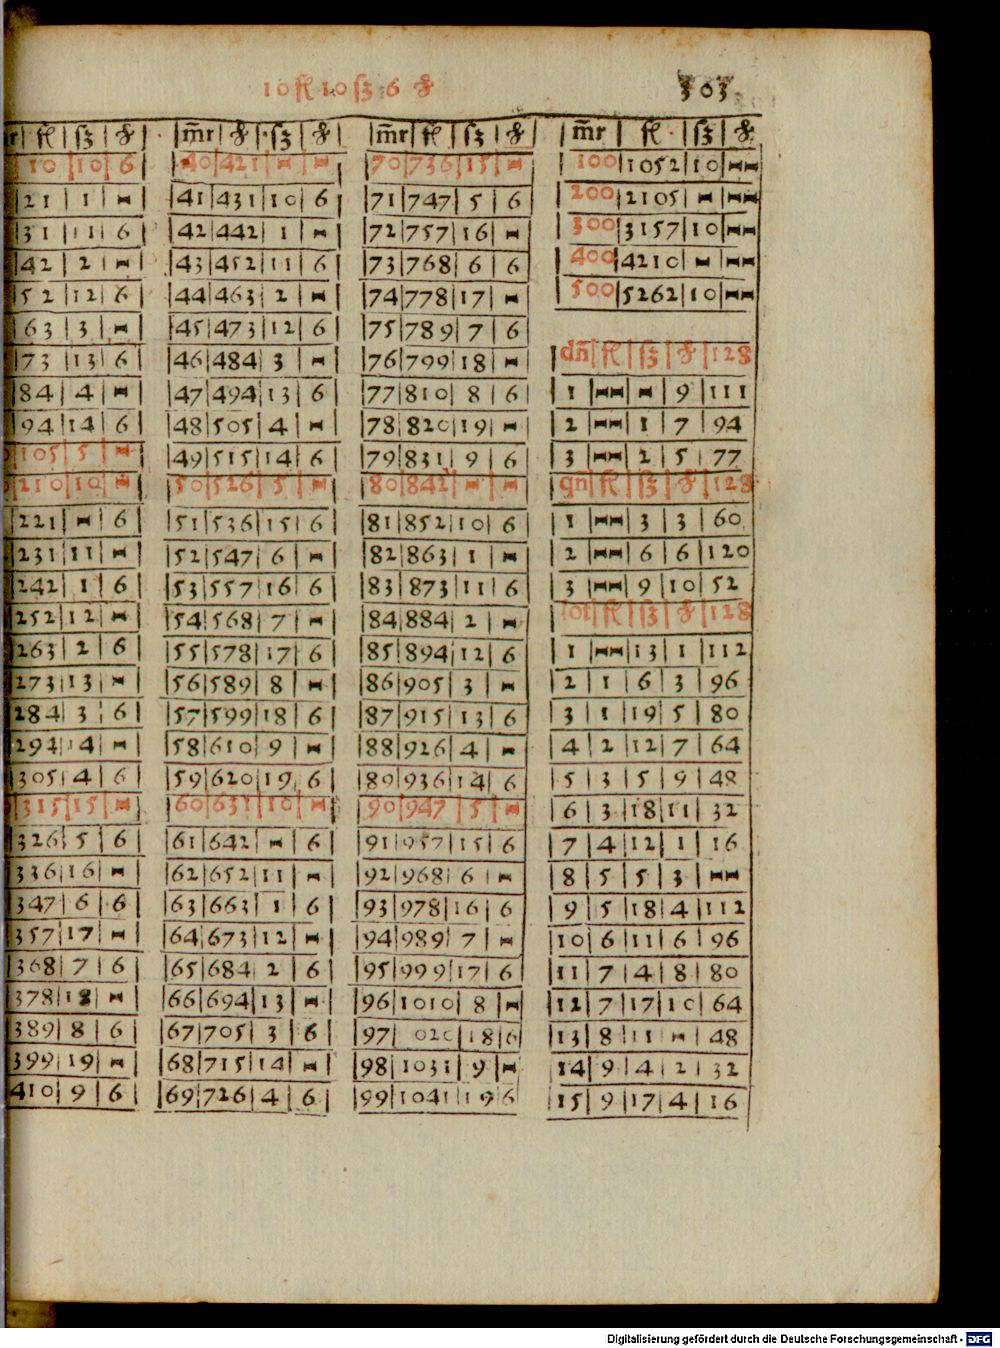 10 fl 10 ſʒ 6 ₰ 303
fl | ſʒ | ₰
10 | 10 | 6
21 | 1 | ⑊
31 | 11 | 6
42 | 2 | ⑊
52 | 12 | 6
63 | 3 | ⑊
73 | 13 | 6
84 | 4 | ⑊
94 | 14 | 6
105 | 5 | ⑊
210 | 10 | ⑊
221 | ⑊ | 6
231 | 11 | ⑊
242 | 1 | 6
252 | 12 | ⑊
263 | 2 | 6
273 | 13 | ⑊
284 | 3 | 6
294 | 14 | ⑊
305 | 4 | 6
315 | 15 | ⑊
326 | 5 | 6
336 | 16 | ⑊
347 | 6 | 6
357 | 17 | ⑊
368 | 7 | 6
378 | 18 | ⑊
389 | 8 | 6
399 | 19 | ⑊
410 | 9 | 6
m̄r | ₰ | ſʒ | ₰
40 | 421 | ⑊ | ⑊
41 | 431 | 10 | 6
42 | 442 | 1 | ⑊
43 | 452 | 11 | 6
44 | 463 | 2 | ⑊
45 | 473 | 12 | 6
46 | 484 | 3 | ⑊
47 | 494 | 13 | 6
48 | 505 | 4 | ⑊
49 | 515 | 14 | 6
50 | 526 | 5 | ⑊
51 | 536 | 15 | 6
52 | 547 | 6 | ⑊
53 | 557 | 16 | 6
54 | 568 | 7 | ⑊
55 | 578 | 17 | 6
56 | 589 | 8 | ⑊
57 | 599 | 18 | 6
58 | 610 | 9 | ⑊
59 | 620 | 19 | 6
60 | 631 | 10 | ⑊
61 | 642 | ⑊ | 6
62 | 652 | 11 | ⑊
63 | 663 | 1 | 6
64 | 673 | 12 | ⑊
65 | 684 | 2 | 6
66 | 694 | 13 | ⑊
67 | 705 | 3 | 6
68 | 715 | 14 | ⑊
69 | 726 | 4 | 6
m̄r | fl | ſʒ | ₰
70 | 736 | 15 | ⑊
71 | 747 | 5 | 6
72 | 757 | 16 | ⑊
73 | 768 | 6 | 6
74 | 778 | 17 | ⑊
75 | 789 | 7 | 6
76 | 799 | 18 | ⑊
77 | 810 | 8 | 6
78 | 820 | 19 | ⑊
79 | 831 | 9 | 6
80 | 842 | ⑊ | ⑊
81 | 852 | 10 | 6
82 | 863 | 1 | ⑊
83 | 873 | 11 | 6
84 | 884 | 2 | ⑊
85 | 894 | 12 | 6
86 | 905 | 3 | ⑊
87 | 915 | 13 | 6
88 | 926 | 4 | ⑊
89 | 936 | 14 | 6
90 | 947 | 5 | ⑊
91 | 957 | 15 | 6
92 | 968 | 6 | ⑊
93 | 978 | 16 | 6
94 | 989 | 7 | ⑊
95 | 999 | 17 | 6
96 | 1010 | 8 | ⑊
97 | 020 | 18 | 6
98 | 1031 | 9 | ⑊
99 | 1041 | 19 6
m̄r | fl | ſʒ | ₰
100 | 1052 | 10 | ⑊⑊
200 | 2105 | ⑊ | ⑊⑊
300 | 3157 | 10 | ⑊⑊
400 | 4210 | ⑊ | ⑊⑊
500 | 5262 | 10 | ⑊⑊
dn̄ | fl | ſʒ | ₰ | 128
1 | ⑊⑊ | ⑊ | 9 | 111
2 | ⑊⑊ | 1 | 7 | 94
3 | ⑊⑊ | 2 | 5 | 77
qn̄ | fl | ſʒ | ₰ | 128
1 | ⑊⑊ | 3 | 3 | 60
2 | ⑊⑊ | 6 | 6 | 120
3 | ⑊⑊ | 9 | 10 | 52
lot | fl | ſʒ | ₰ | 128
1 | ⑊⑊ | 13 | 1 | 112
2 | 1 | 6 | 3 | 96
3 | 1 | 19 | 5 | 80
4 | 2 | 12 | 7 | 64
5 | 3 | 5 | 9 | 48
6 | 3 | 18 | 11 | 32
7 | 4 | 12 | 1 | 16
8 | 5 | 5 | 3 | ⑊⑊
9 | 5 | 18 | 4 | 112
10 | 6 | 11 | 6 | 96
11 | 7 | 4 | 8 | 80
12 | 7 | 17 | 10 | 64
13 | 8 | 11 | ⑊ | 48
14 | 9 | 4 | 2 | 32
15 | 9 | 17 | 4 | 16
Digitalisierung gefördert durch die Deutsche Forschungsgemeinschaft - DFG